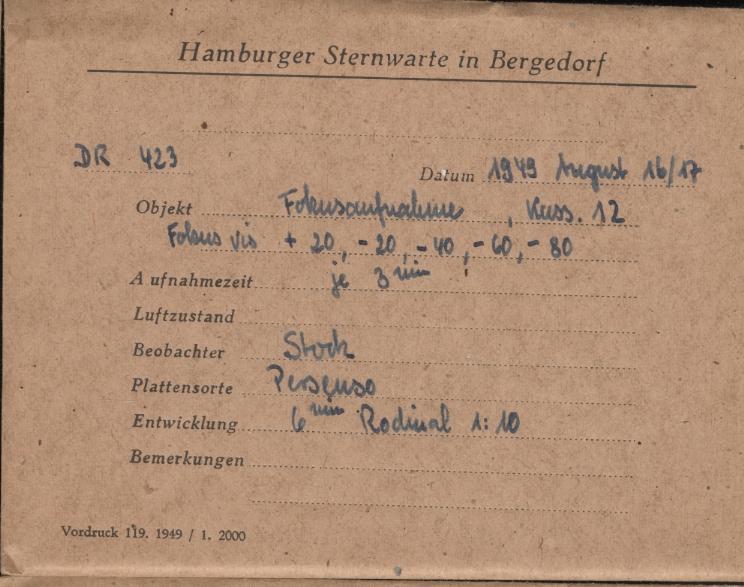 Hamburger Sternwarte in Bergedorf
DR 423
Datum 1949 August 16/17
Objekt Fokusaufnahme, Kass. 12
Fokus vis + 20, - 20, - 40, - 60, - 80
Aufnahmezeit je 3 min
Luftzustand
Beobachter Stock
Plattensorte Persenso
Entwicklung 6 min Rodinal 1:10
Bemerkungen
Vordruck 119. 1949 / 1. 2000